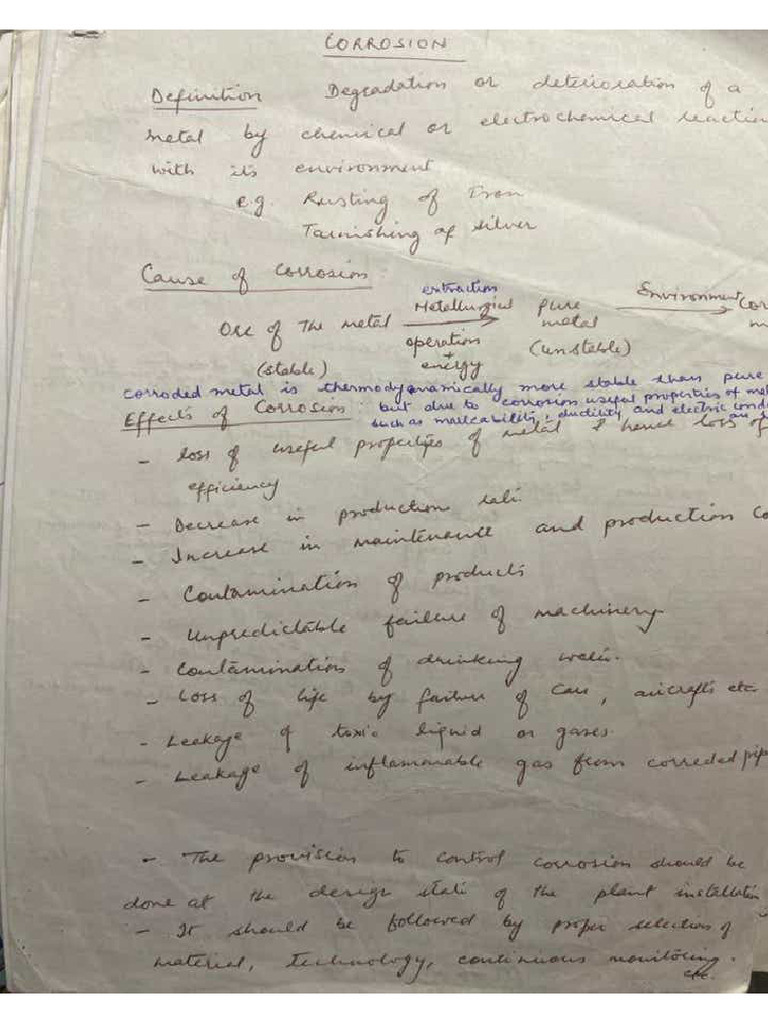 CORROSION
Definition Degradation or deterioration of a
metal by chemical or electrochemical reaction
with its environment
e.g. Rusting of Iron
Tarnishing of silver
Cause of Corrosion
extraction
Ore of the metal Metallurgical pure Environment
operation metal
+
(stable) energy (unstable)
corroded metal is thermodynamically more stable than pure
Effects of Corrosion: but due to corrosion useful properties of
such as malleability, ductility and electric
- loss of useful properties of metal & hence loss of
efficiency
- Decrease in production rate.
- Increase in maintenance and production
- Contamination of products
- Unpredictable failure of machinery
- Contamination of drinking water.
- Loss of life by failure of cars, aircrafts etc
- Leakage of toxic liquid or gases.
- Leakage of inflammable gas from corroded
- The provision to control corrosion should be
done at the design state of the plant installation
- It should be followed by proper selection of
material, technology, continuous monitoring.
etc.